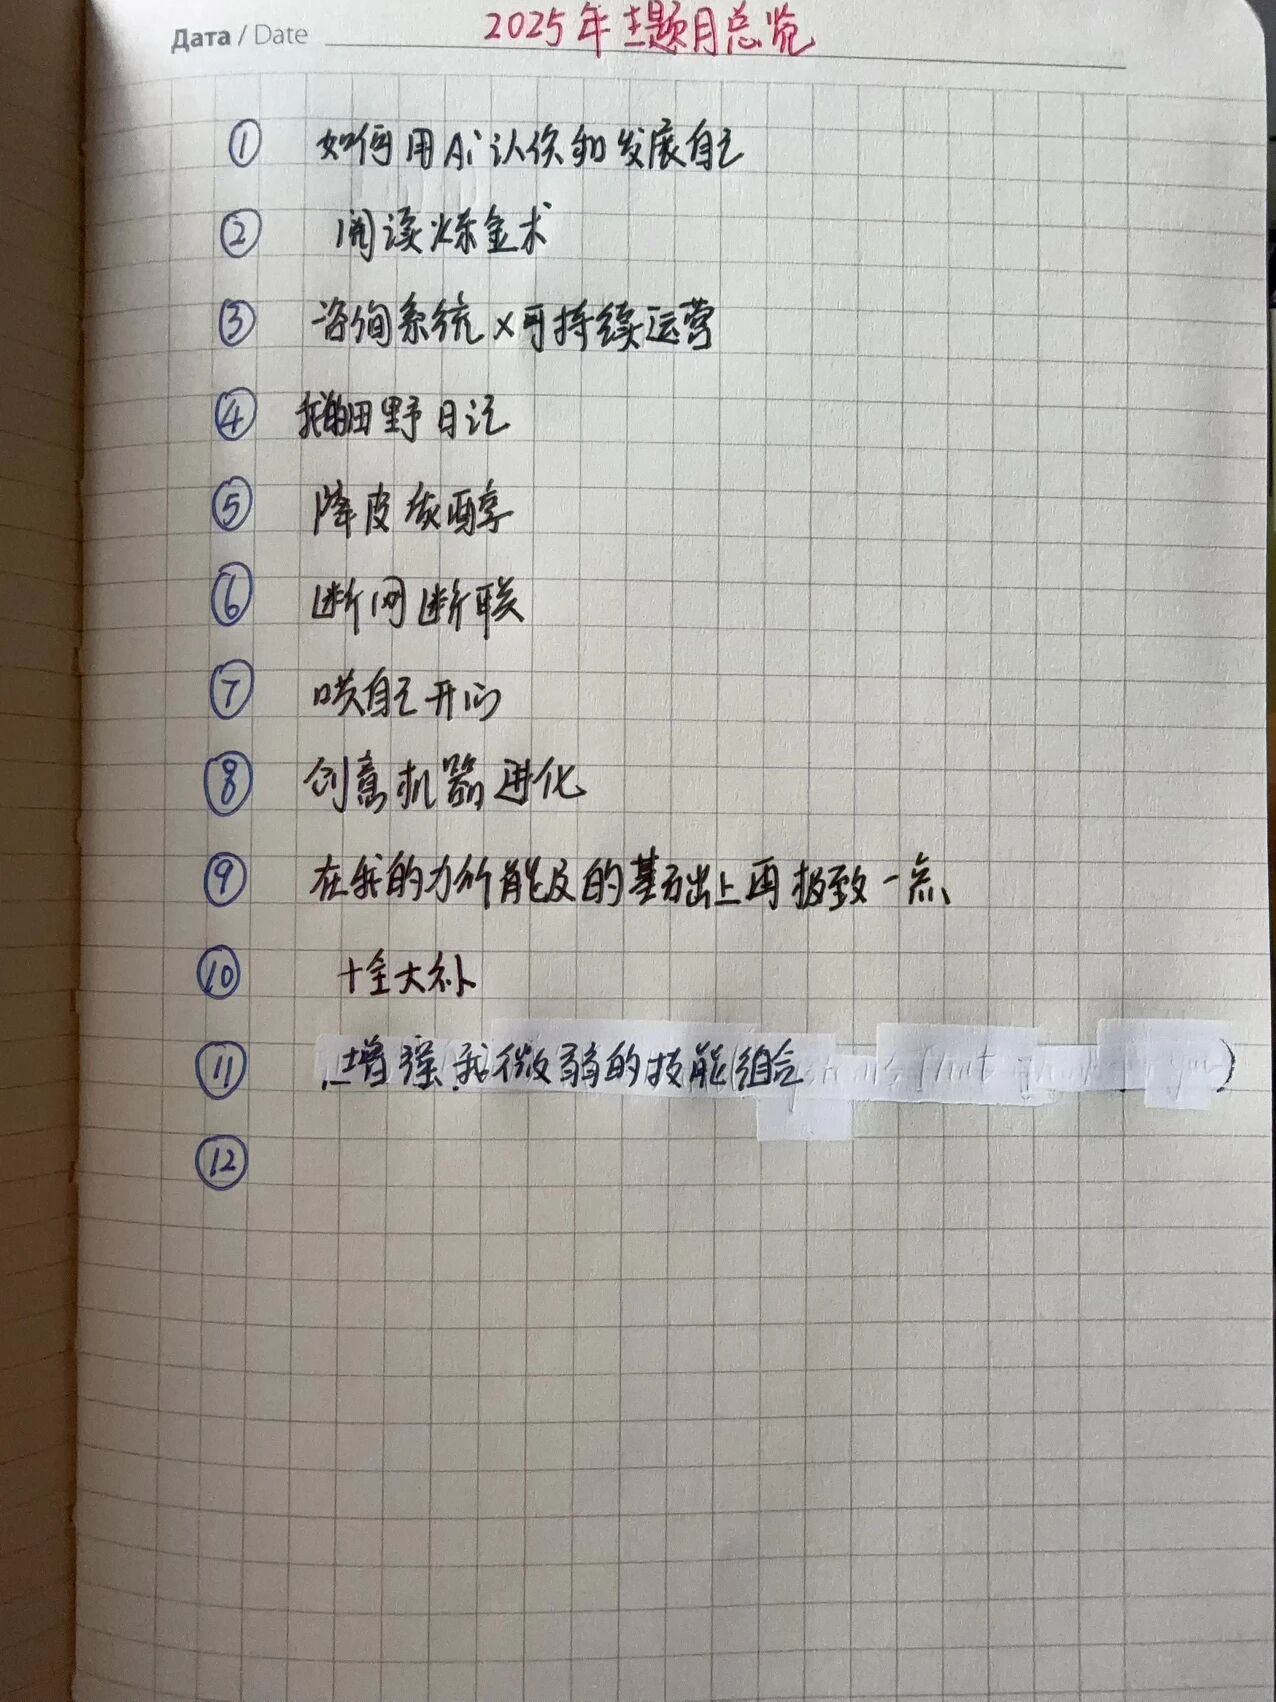 Дата / Date 2025年主题月总览
① 如何用Ai认识和发展自己
② 阅读炼金术
③ 咨询系统×可持续运营
④ 我的田野日记
⑤ 陈皮发酵
⑥ 断网断联
⑦ 哄自己开心
⑧ 创意机器进化
⑨ 在我的力所能及的基础上再极致一点
⑩ 十全大补
⑪ 增强我微弱的技能组合 )
⑫